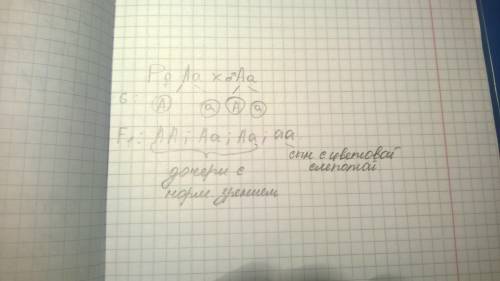 P ♀ Aa × ♂ Aa
G: A a A a
F₁: AA; Aa; Aa; aa
сын с цветовой
слепотой
дочери с
норм. зрением